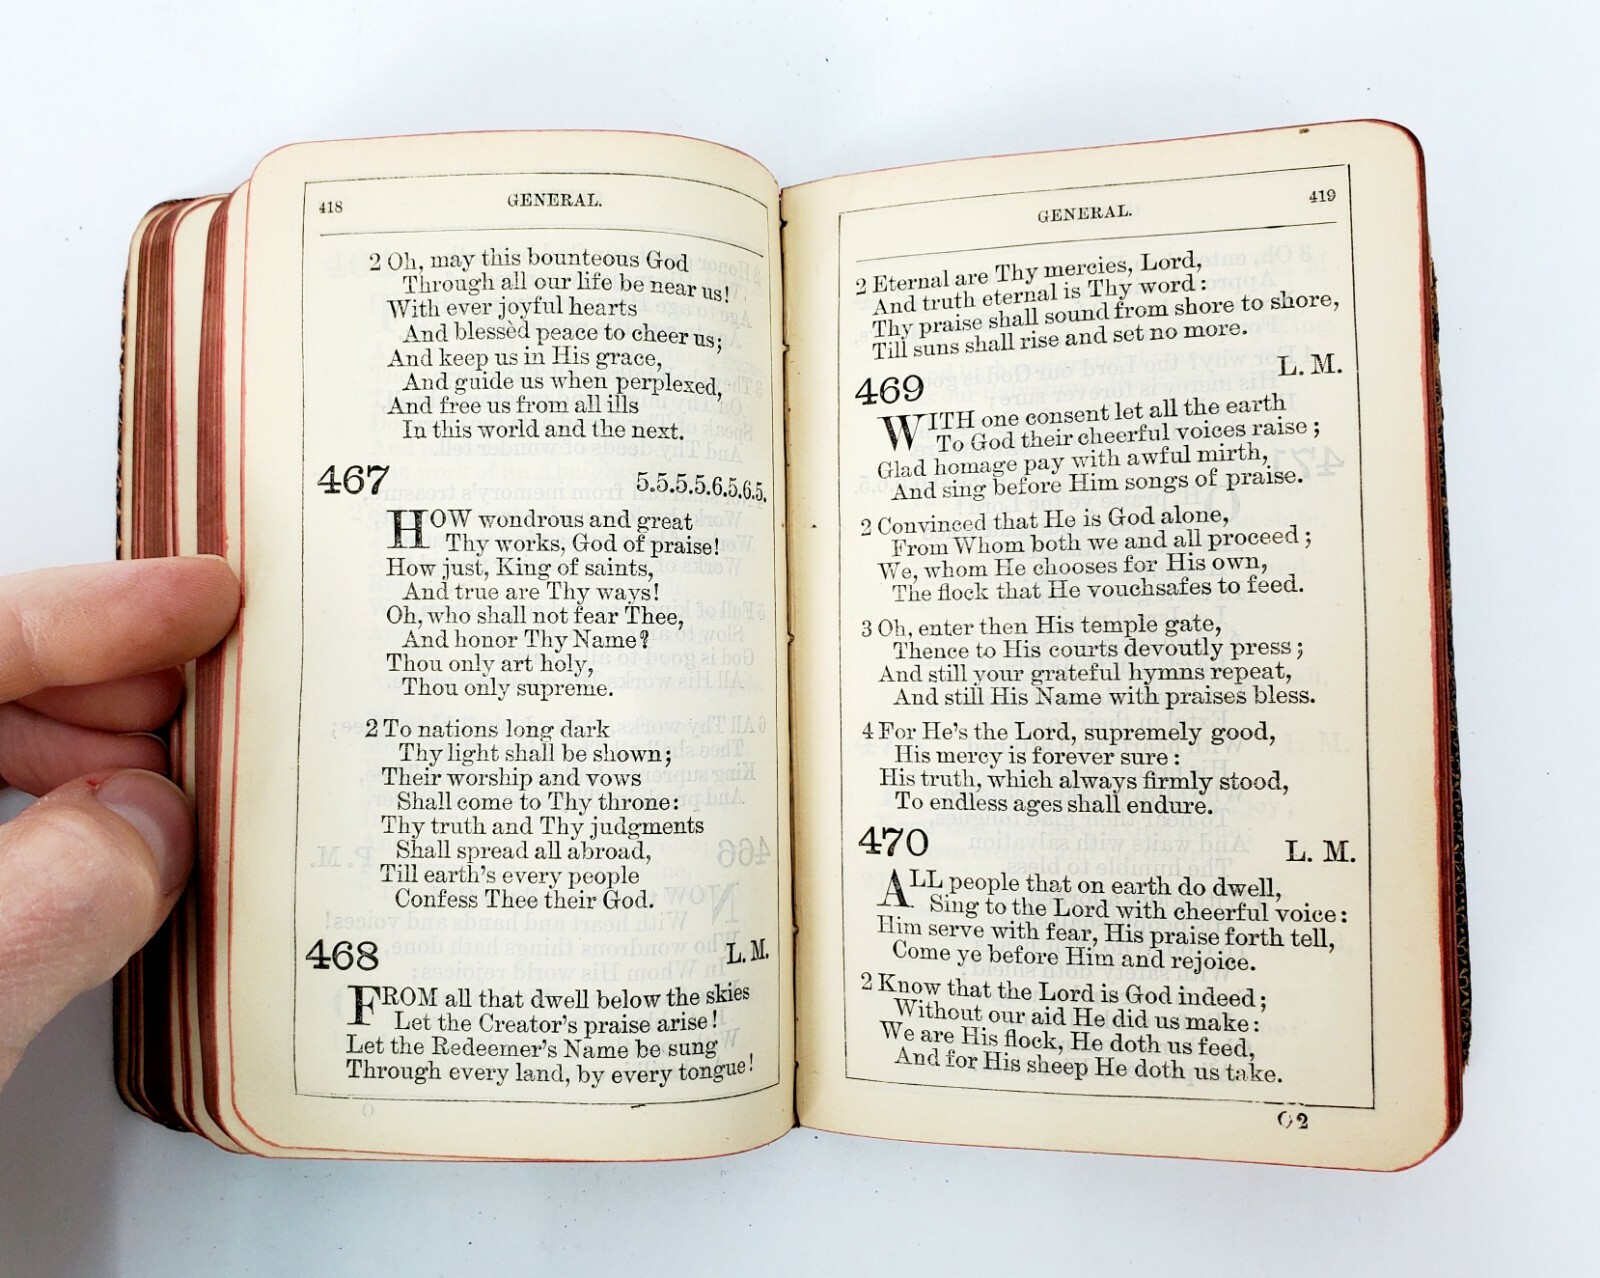 418
GENERAL.
2 Oh, may this bounteous God
Through all our life be near us!
With ever joyful hearts
And blessèd peace to cheer us;
And keep us in His grace,
And guide us when perplexed,
And free us from all ills
In this world and the next.
467 5.5.5.5.6.5.6.5.
HOW wondrous and great
Thy works, God of praise!
How just, King of saints,
And true are Thy ways!
Oh, who shall not fear Thee,
And honor Thy Name?
Thou only art holy,
Thou only supreme.
2 To nations long dark
Thy light shall be shown;
Their worship and vows
Shall come to Thy throne:
Thy truth and Thy judgments
Shall spread all abroad,
Till earth's every people
Confess Thee their God.
468 L. M.
FROM all that dwell below the skies
Let the Creator's praise arise!
Let the Redeemer's Name be sung
Through every land, by every tongue!
GENERAL.
419
2 Eternal are Thy mercies, Lord,
And truth eternal is Thy word:
Thy praise shall sound from shore to shore,
Till suns shall rise and set no more.
469 L. M.
WITH one consent let all the earth
To God their cheerful voices raise;
Glad homage pay with awful mirth,
And sing before Him songs of praise.
2 Convinced that He is God alone,
From Whom both we and all proceed;
We, whom He chooses for His own,
The flock that He vouchsafes to feed.
3 Oh, enter then His temple gate,
Thence to His courts devoutly press;
And still your grateful hymns repeat,
And still His Name with praises bless.
4 For He's the Lord, supremely good,
His mercy is forever sure:
His truth, which always firmly stood,
To endless ages shall endure.
470 L. M.
ALL people that on earth do dwell,
Sing to the Lord with cheerful voice:
Him serve with fear, His praise forth tell,
Come ye before Him and rejoice.
2 Know that the Lord is God indeed;
Without our aid He did us make:
We are His flock, He doth us feed,
And for His sheep He doth us take.
O 2